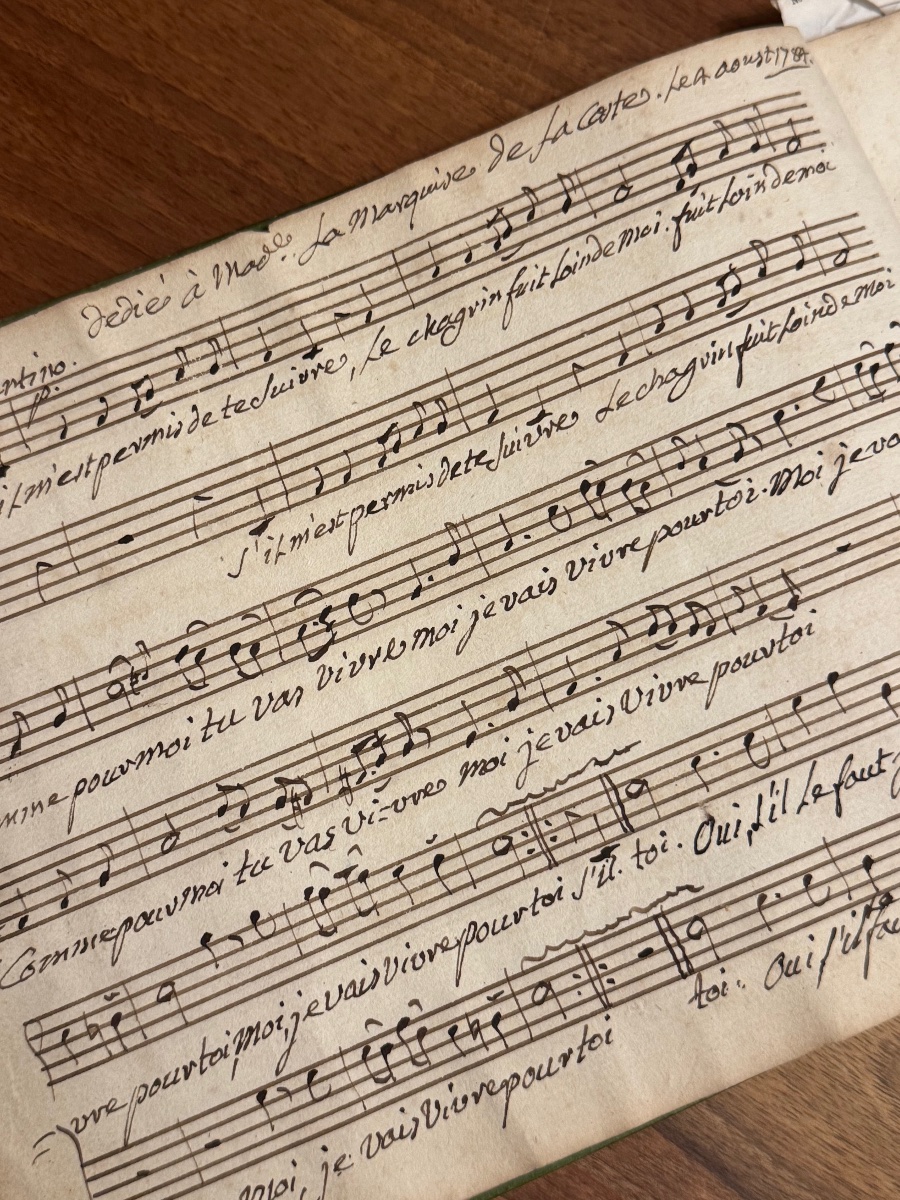 dedié à Made. La Marquise de La Coste. Le 4 aoust 1784.
ntino.
p.
il m'est permis de te Suivre, Le chagrin fuit Loin de moi. fuit Loin de moi
S'il m'est permis de te Suivre Le chagrin fuit Loin de moi
mme pour moi tu vas vivre moi je vais vivre pour toi. Moi je va
Comme pour moi tu vas vi-vre moi je vais Vivre pour toi
vre pour toi, Moi, je vais Vivre pour toi S'il. toi. Oui, s'il Le faut
Moi, je vais Vivre pour toi toi. Oui s'il fau